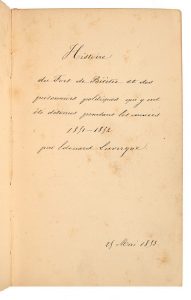 Histoire
du Fort de Bicêtre et des
personnes politiques qui y ont
été détenus pendant les années
1851-1852
par Edouard
25 Mai 1853